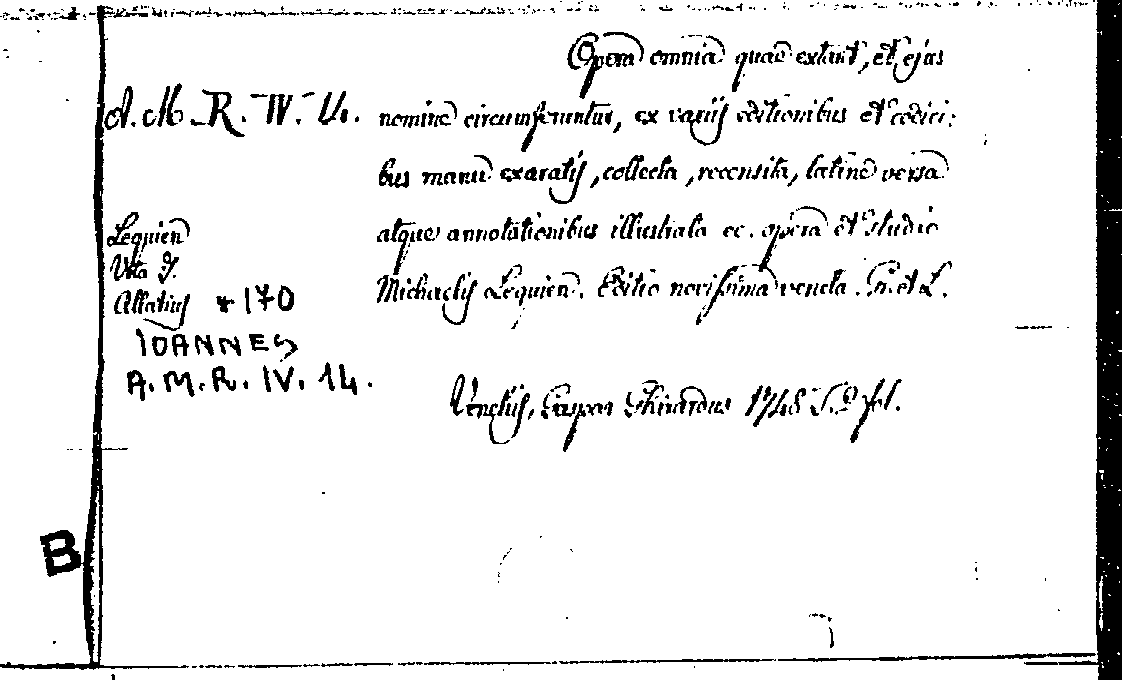 Opera omnia quae extant, et ejus
A. M. R. IV.
nomine circumferuntur, ex variis editionibus et codici:
bus manu exaratis, collecta, recensita, latine versa
atque annotationibus illustrata ec. opera et studio
Michaelis Lequien. Editio novissima veneta. G. et L.
Lequien
Vita J.
Allatius * 170
IOANNES
A. M. R. IV. 14.
Venetiis, Gaspar 1748 T. 2 fol.
B